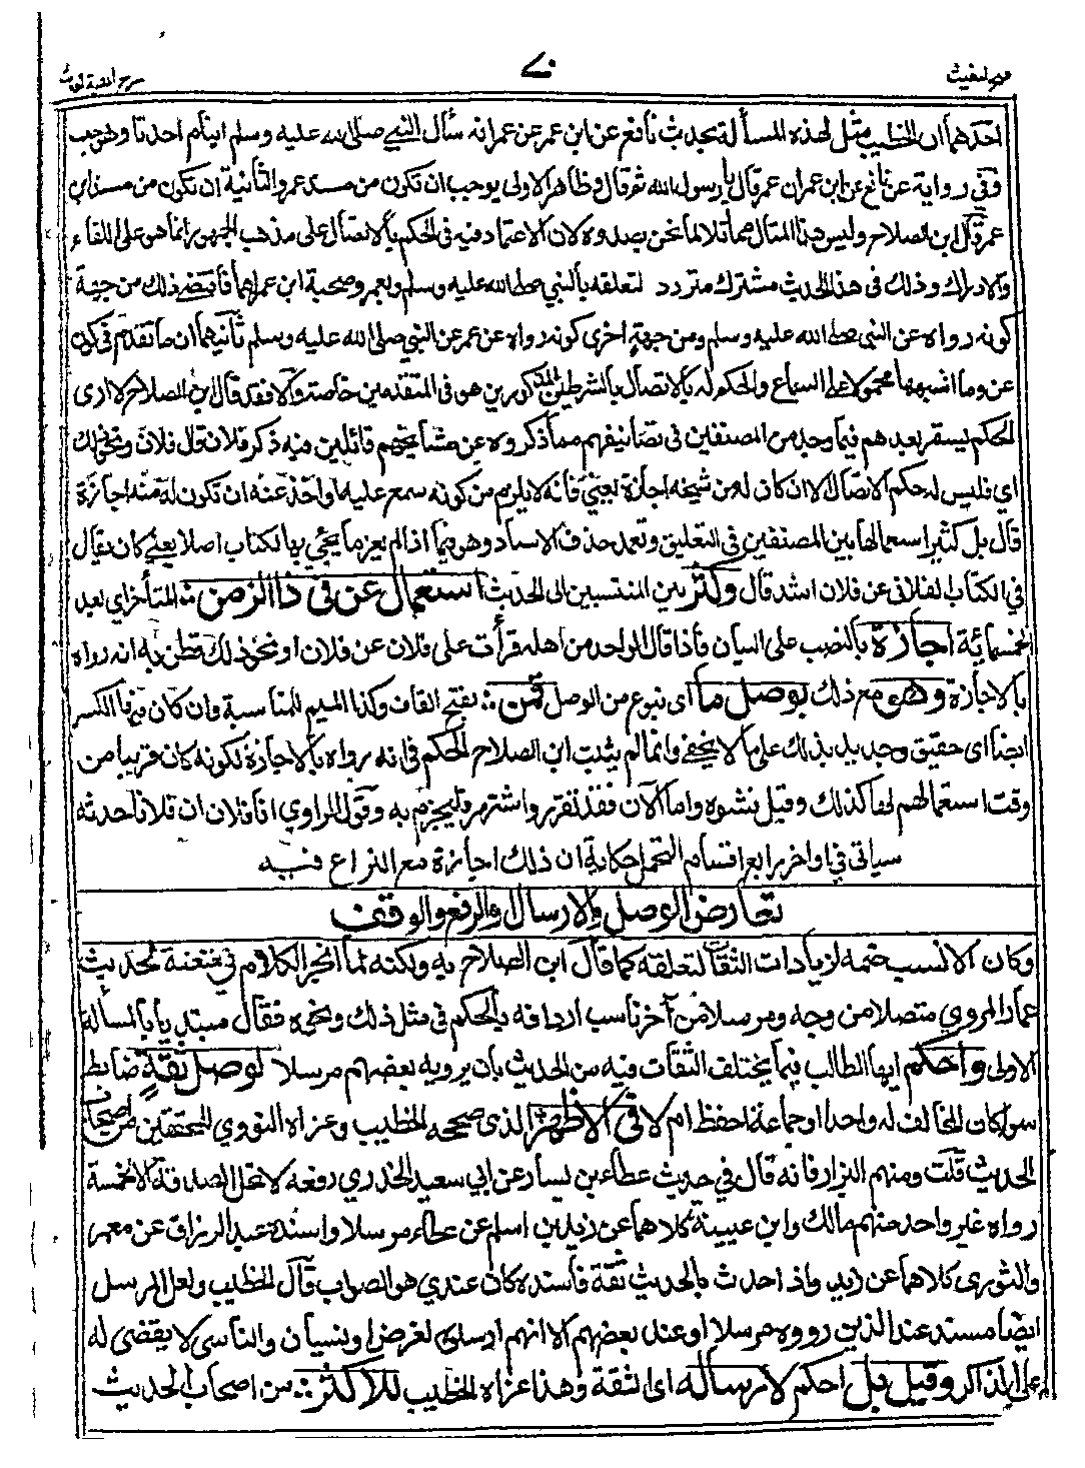 فتح المغيث
٧٠
شرح الفية الحديث
احدهما ان الخطيب مثل لهذه المسألة بحديث نافع عن ابن عمر عن عمر انه سأل النبي صلى الله عليه وسلم اينام احدنا وهو جنب
وفي رواية عن نافع عن ابن عمر ان عمر قال يا رسول الله ثم قال وظاهر الاولى يوجب ان تكون من مسند عمر والثانية ان تكون من مسند ابن
عمر قال ابن الصلاح وليس هذا المثال مماثلا لما نحن بصدده لان الاعتماد فيه في الحكم بالاتصال على مذهب الجمهور انما هو على اللقاء
والادراك وذلك في هذا الحديث مشترك متردد لتعلقه بالنبي صلى الله عليه وسلم وبعمر وصحبة ابن عمر لهما فاقتضى ذلك من جهة
كونه رواه عن النبي صلى الله عليه وسلم ومن جهة اخرى كونه رواه عن عمر عن النبي صلى الله عليه وسلم ثانيهما ان ما تقدم في كون
عن وما اشبهها محمولا على السماع والحكم له بالاتصال بالشرطين المذكورين هو في المتقدمين خاصة والا فقد قال ابن الصلاح لا ارى
الحكم يستمر بعدهم فيما وجد من المصنفين في تصانيفهم مما ذكروه عن مشايخهم قائلين فيه ذكر فلان قال فلان ونحو ذلك
اي فليس له حكم الاتصال الا ان كان له من شيخه اجازة يعني فانه لا يلزم من كونه سمع عليه او اخذ عنه ان تكون له منه اجازة
قال بل كثر استعمالها بين المصنفين في التعليق وتعمد حذف الاسناد وهو فيما اذا لم يعز ما يجئ بها لكتاب اصلا يعني كان يقال
في الكتاب الفلاني عن فلان اشد قال وكثر بين المنتسبين الى الحديث استعمال عن في ذا الزمن ؛ المتأخر اي بعد
الخمسمائة اجازة بالنصب على البيان فاذا قال الواحد من اهله قرأت على فلان عن فلان او نحو ذلك فظن به انه رواه
بالاجازة وهو مع ذلك بوصل ما اي بنوع من الوصل قمن ؛ بفتح القاف وكذا الميم للمناسبة وان كان فيها الكسر
ايضا اي حقيق وجدير بذلك على ما لا يخفى وانما لم يثبت ابن الصلاح الحكم في انه رواه بالاجازة لكونه كان قريبا من
وقت استعمالهم لها كذلك وقبل فشوه واما الآن فقد تقرر واشتهر فليجزم به وقول الراوي انا فلان ان فلانا حدثه
سياتي في اواخر رابع اقسام التحمل حكاية ان ذلك اجازة مع النزاع فيه
تعارض الوصل والارسال والرفع والوقف
وكان الانسب ضمه لزيادات الثقات لتعلقه كما قال ابن الصلاح به ولكنه لما انجر الكلام في عنعنة لحديث
عما ذا المروي متصلا من وجه ومرسلا من آخر ناسب اردافه بالحكم في مثل ذلك ونحوه فقال مبتديا بالمسألة
الاولى واحكم ايها الطالب فيما يختلف الثقات فيه من الحديث بان يرويه بعضهم مرسلا لوصل ثقة ضابط
سواء كان المخالف له واحدا او جماعة احفظ ام لا في الاظهر ؛ الذي صححه الخطيب وعزاه النووي للمحققين من اصحاب
الحديث قلت ومنهم البزار فانه قال في حديث عطاء بن يسار عن ابي سعيد الخدري رفعه لا تحل الصدقة الا لخمسة
رواه غير واحد منهم مالك وابن عيينة كلاهما عن زيد بن اسلم عن عطاء مرسلا واسنده عبد الرزاق عن معمر
والثوري كلاهما عن زيد واذا حدث بالحديث ثقة فاسنده كان عندي هو الصواب قال الخطيب ولعل المرسل
ايضا مسند عند الذين رووه مرسلا او عند بعضهم الا انهم ارسلوه لغرض او نسيان والناسي لا يقضى له
على الذاكر وقيل بل احكم لارساله اي الثقة وهذا عزاه الخطيب للاكثر ؛ من اصحاب الحديث